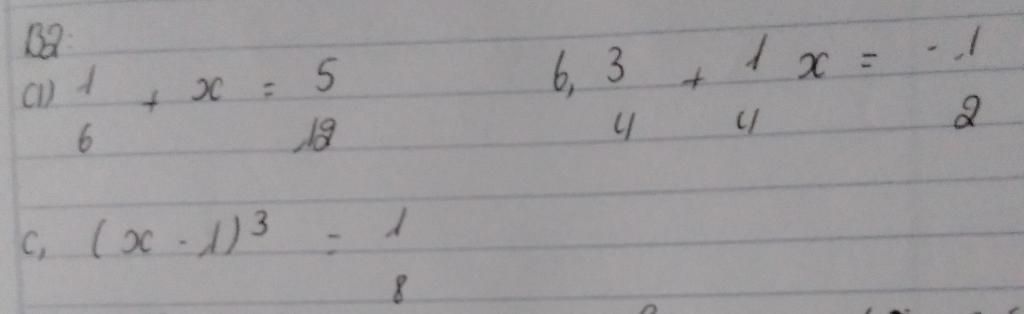 B2:
a) 1/6 + x = 5/12
b, 3/4 + 1/4 x = -1/2
c, (x - 1)³ = 1/8